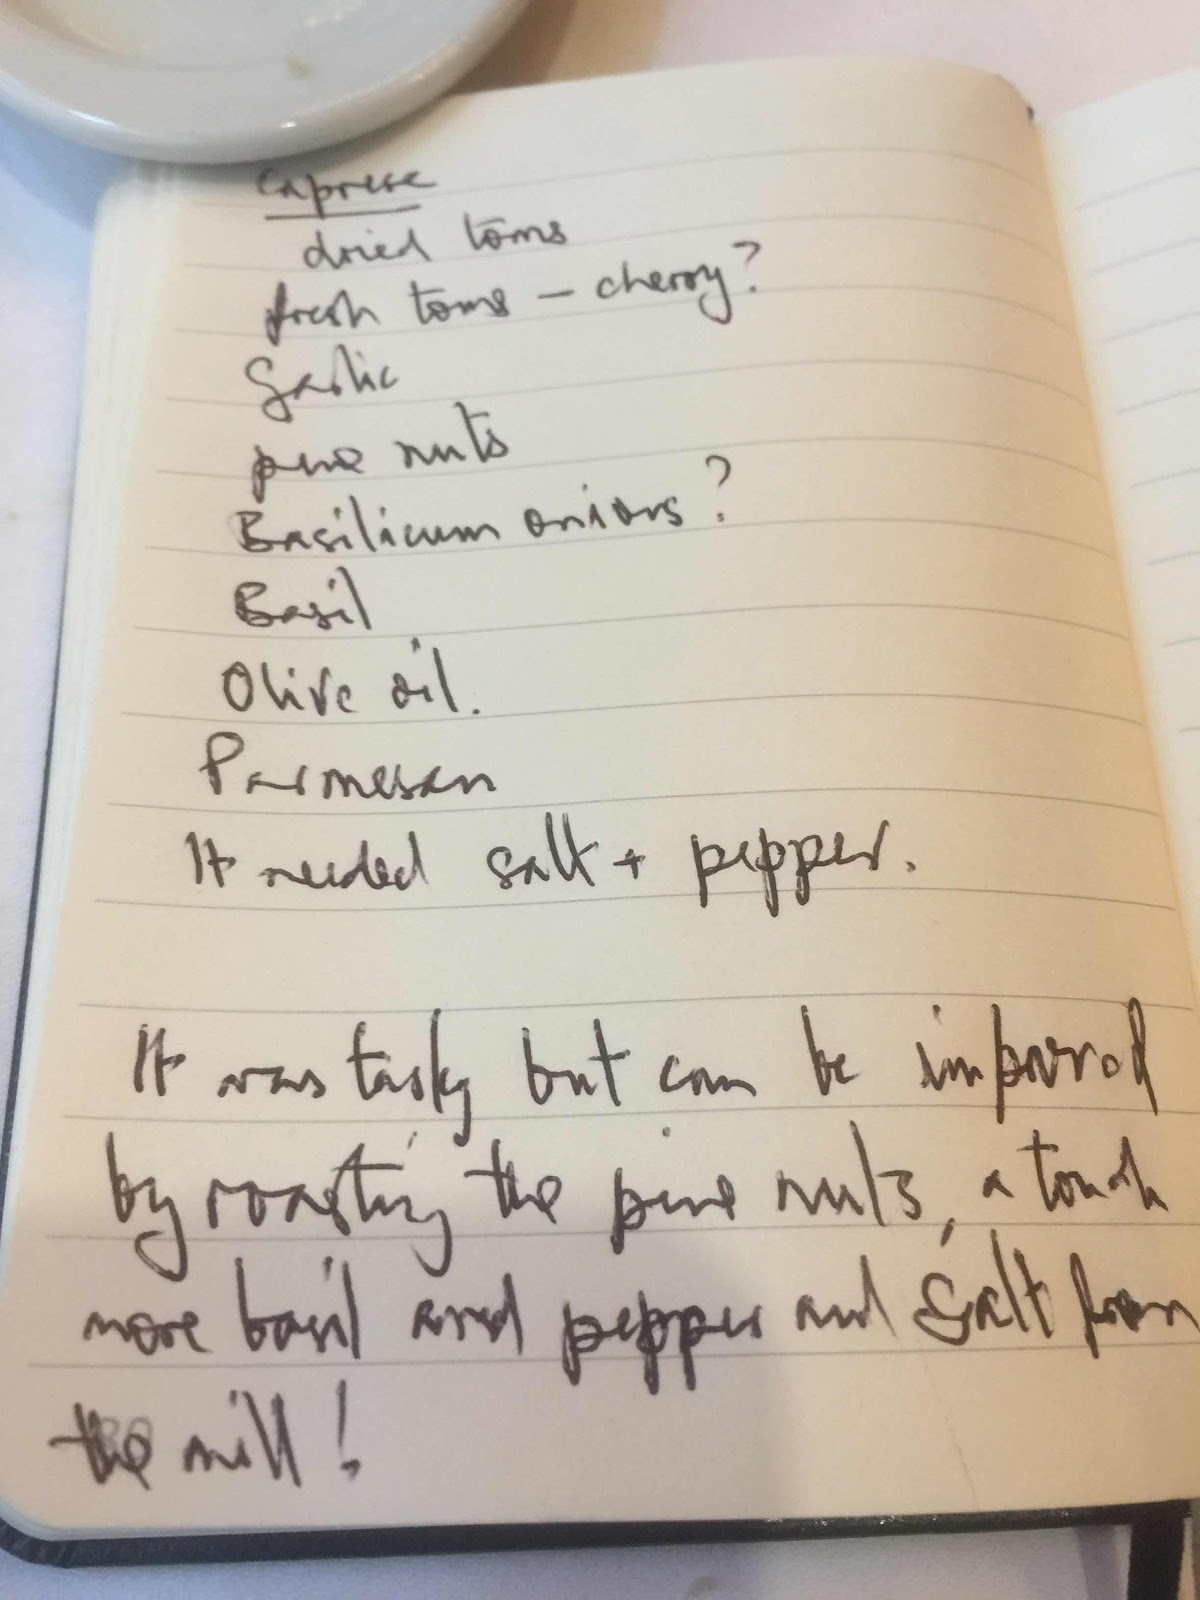 Caprese
dried toms
fresh toms - cherry?
Garlic
pine nuts
Basilicum onions?
Basil
Olive oil.
Parmesan
It needed salt + pepper.
It was tasty but can be improved
by roasting the pine nuts, a touch
more basil and pepper and salt from
the mill!